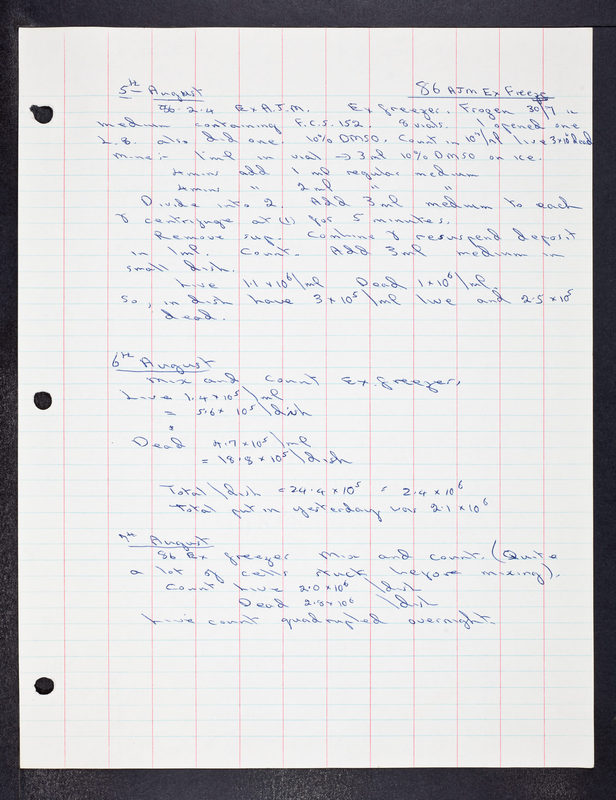 5th August 86 AJM Ex Freeze
86.2.4 Ex A.J.M. Ex freezer. Frozen 30/7 in
medium containing F.C.S. 152. 8 vials. I opened one
L.B. also did one. 10% DMSO. Count in 10⁶/ml live 3x10⁶ dead
Mine:- 1ml in vial → 3ml 10% DMSO on ice.
4mins add 1 ml regular medium
4mins " 2 ml " "
Divide into 2. Add 3ml medium to each
& centrifuge at (1) for 5 minutes.
Remove sup. Combine & resuspend deposit
in 1ml. Count. Add 3ml medium in
small dish.
Live 1.1 x 10⁶/ml Dead 1 x 10⁶/ml.
So, in dish have 3 x 10⁵/ml live and 2.5 x 10⁵
dead.
6th August
Mix and count Ex. freezer.
Live 1.4 x 10⁵/ml
= 5.6 x 10⁵/dish
Dead 4.7 x 10⁵/ml
= 18.8 x 10⁵/dish
Total/dish = 24.4 x 10⁵ = 2.4 x 10⁶
Total put in yesterday was 2.1 x 10⁶
7th August
86 Ex freezer Mix and count. (Quite
a lot of cells stuck before mixing).
Count Live 2.0 x 10⁶/dish
Dead 2.8 x 10⁶/dish
Live count quadrupled overnight.